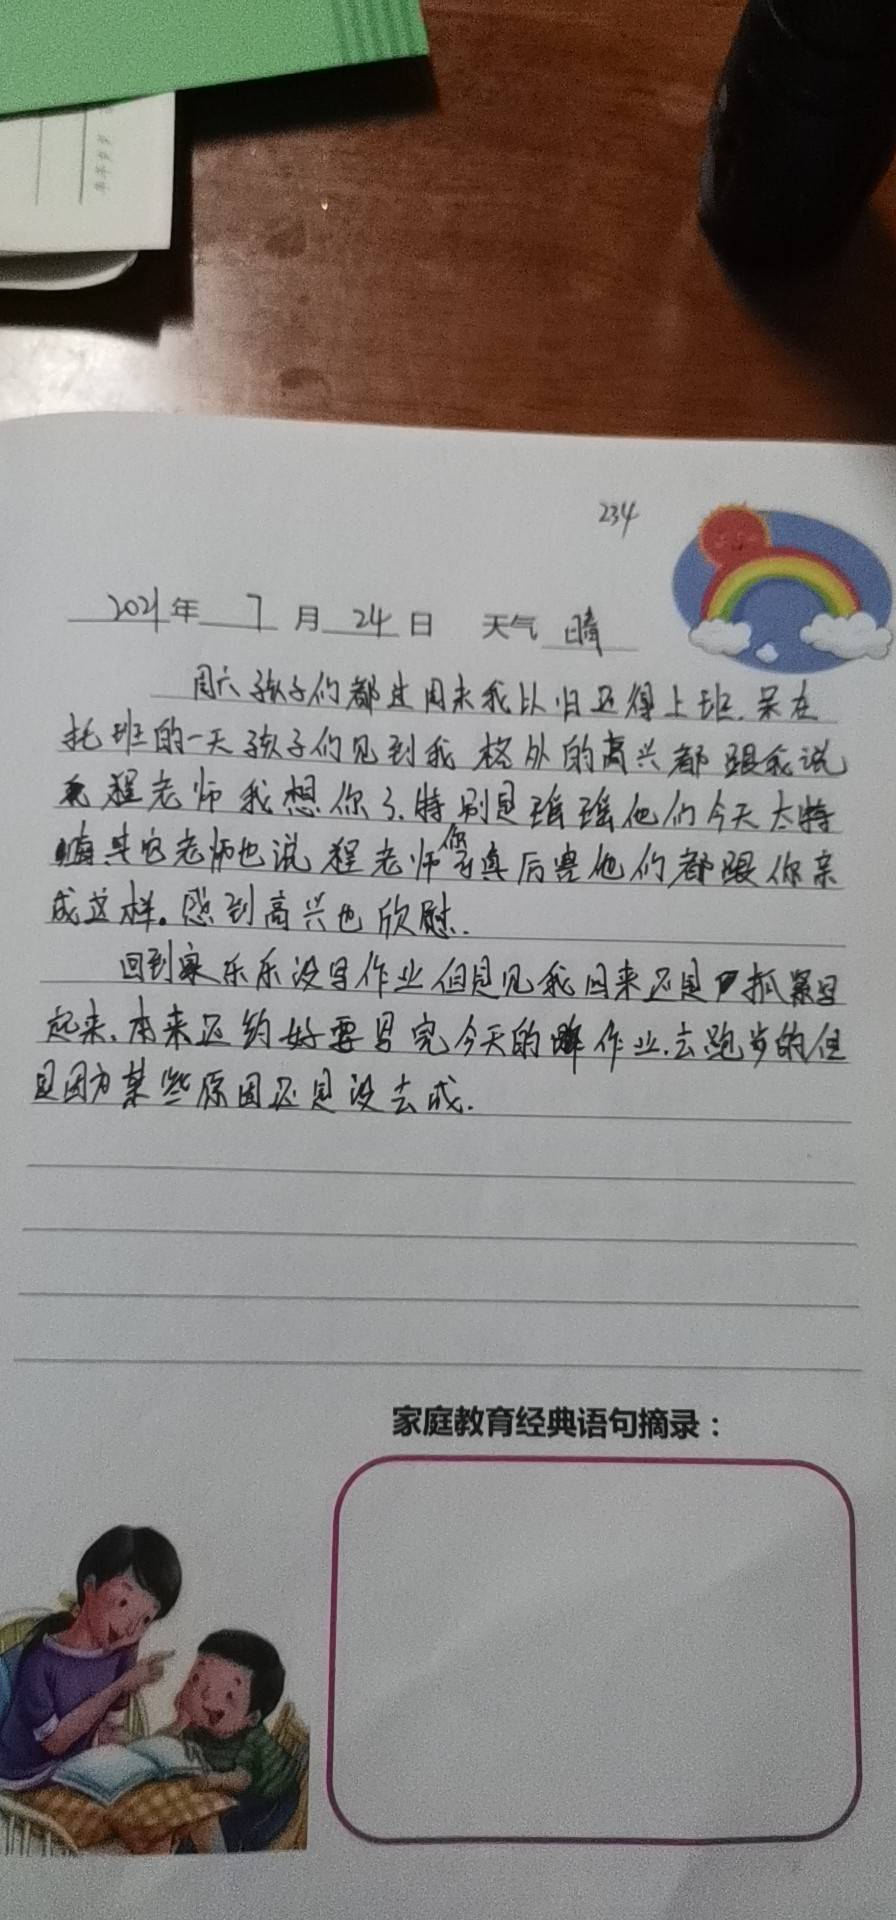 234
2021年 7月 24日 天气 晴
周六孩子们都过周末我依旧还得上班.呆在
托班的一天孩子们见到我格外的高兴都跟我说
程老师我想你了.特别是瑶瑶他们今天太特
嗨其它老师也说程老师你真厉害他们都跟你亲
成这样。感到高兴也欣慰.
回到家乐乐没写作业但是见我回来还是抓紧写
起来.本来还约好要写完今天的作业.去跑步的但
是因为某些原因还是没去成.
家庭教育经典语句摘录：